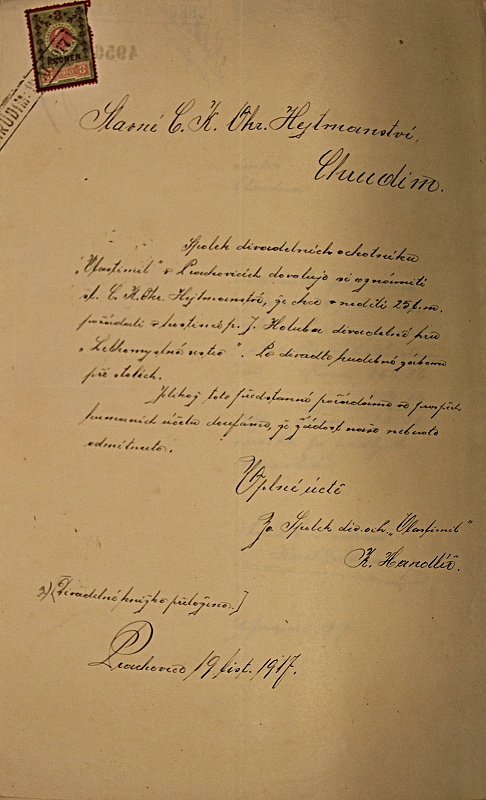 Slavné C. K. Okr. Hejtmanství
Chrudim.
Spolek divadelních ochotníku
„Vlastimil" v Prachovicích dovoluje si oznámiti
sl. C. K. Okr. Hejtmanství, že chce v neděli 25 t.m.
pořádati v hostinci p. J. Holuba divadelní hru
„Lehkomyslná sestra". Po divadle hudební zábava
při stolích.
Jelikož toto představení pořádáme ve prospěch
humaních účelu doufáme, že žádost naše nebude
odmítnuta.
V plné úctě
Za Spolek div. och. „Vlastimil"
K. Handlíř.
(Divadelní knížka přiložena.)
Prachovice 19 list. 1917.